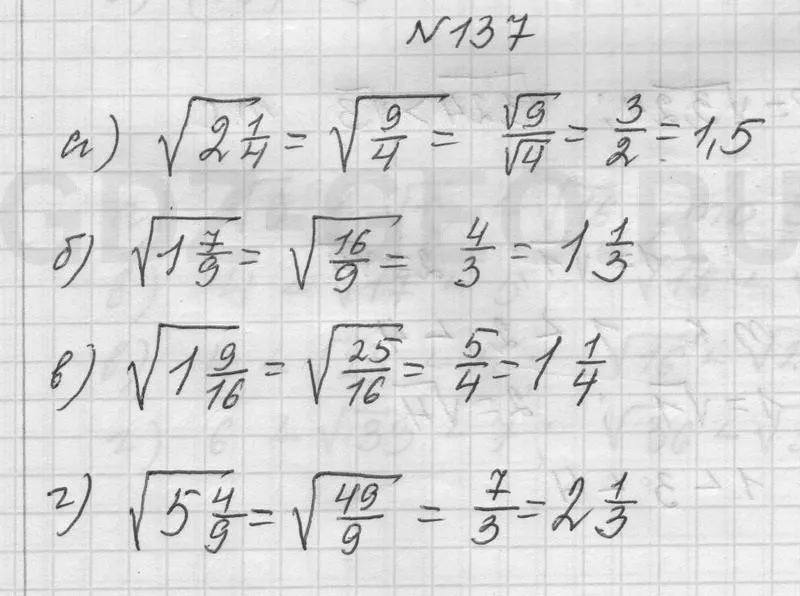 №137
а) √(2 1/4) = √(9/4) = √9/√4 = 3/2 = 1,5
б) √(1 7/9) = √(16/9) = 4/3 = 1 1/3
в) √(1 9/16) = √(25/16) = 5/4 = 1 1/4
г) √(5 4/9) = √(49/9) = 7/3 = 2 1/3